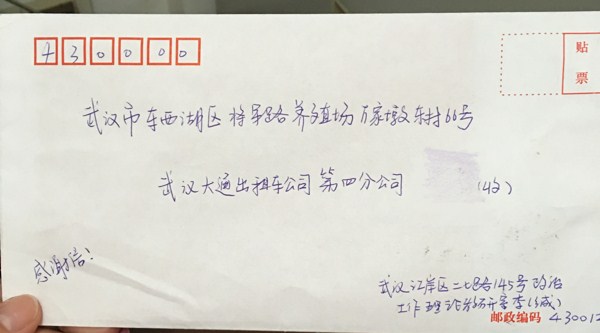 430000
贴
票
武汉市东西湖区将军路养殖场万家墩东村66号
武汉大通出租车公司第四分公司 (收)
感谢信!
武汉江岸区二七路145号政治
工作
邮政编码 430012